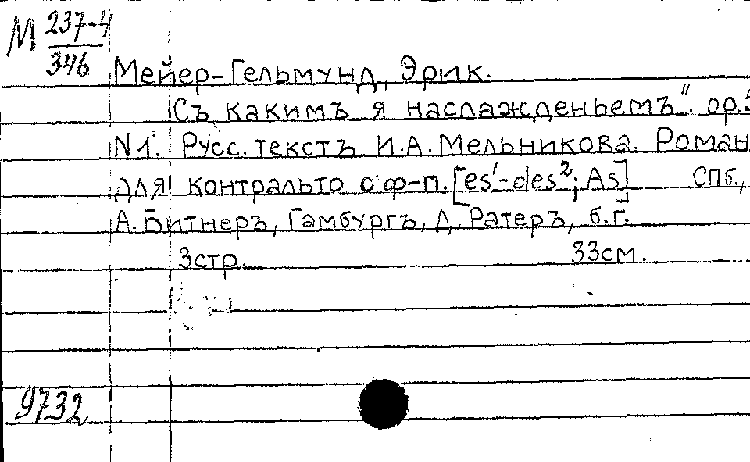 М 237-4
346
Мейер-Гельмунд, Эрик.
Съ какимъ я наслажденьемъ". ор.
N1. Русс. текстъ И.А. Мельникова. Роман
для контральто с ф-п. [es¹-des²; As] СПб.,
А. Битнеръ, Гамбургъ, Д. Ратеръ, б.г.
3стр. 33см.
9732